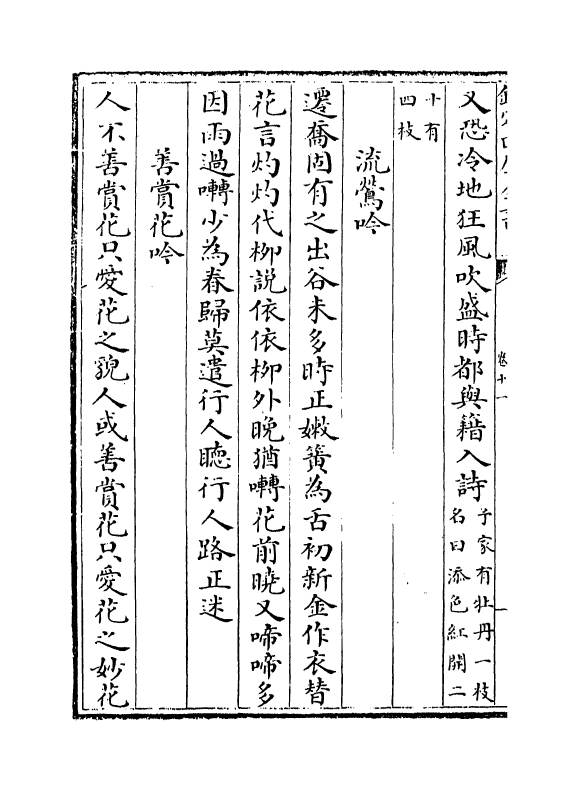 卷十一
又恐冷地狂風吹盛時都與籍入詩子家有牡丹一枝名曰添色紅開二
十有四枝
流鶯吟
遷喬固有之出谷未多時正嫩簧為舌初新金作衣替
花言灼灼代柳說依依柳外晚猶囀花前曉又啼啼多
因雨過囀少為春歸莫遣行人聽行人路正迷
善賞花吟
人不善賞花只愛花之貌人或善賞花只愛花之妙花